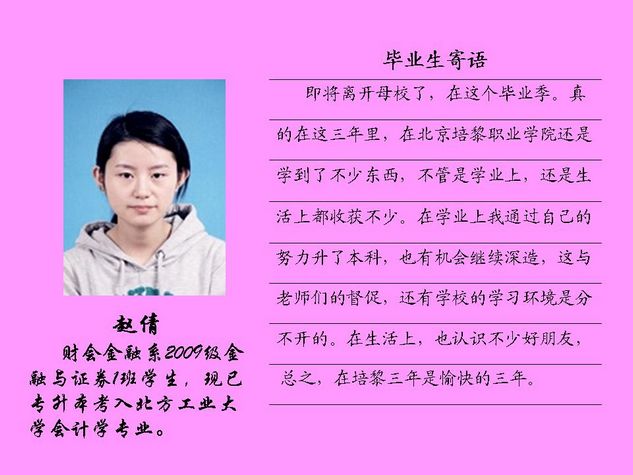 毕业生寄语
即将离开母校了，在这个毕业季。真
的在这三年里，在北京培黎职业学院还是
学到了不少东西，不管是学业上，还是生
活上都收获不少。在学业上我通过自己的
努力升了本科，也有机会继续深造，这与
老师们的督促，还有学校的学习环境是分
不开的。在生活上，也认识不少好朋友，
总之，在培黎三年是愉快的三年。
赵倩
财会金融系2009级金
融与证券1班学生，现已
专升本考入北方工业大
学会计学专业。